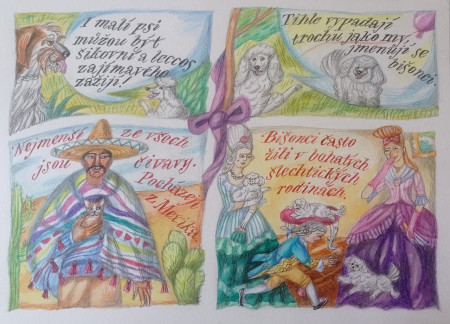 I malí psi
můžou být
šikovní a leccos
zajímavého
zažijí!
Tihle vypadají
trochu jako my,
jmenují se
bišonci.
Nejmenší ze všech
jsou čivavy.
Pocházejí
z Mexika.
Bišonci často
žili v bohatých
šlechtických
rodinách.